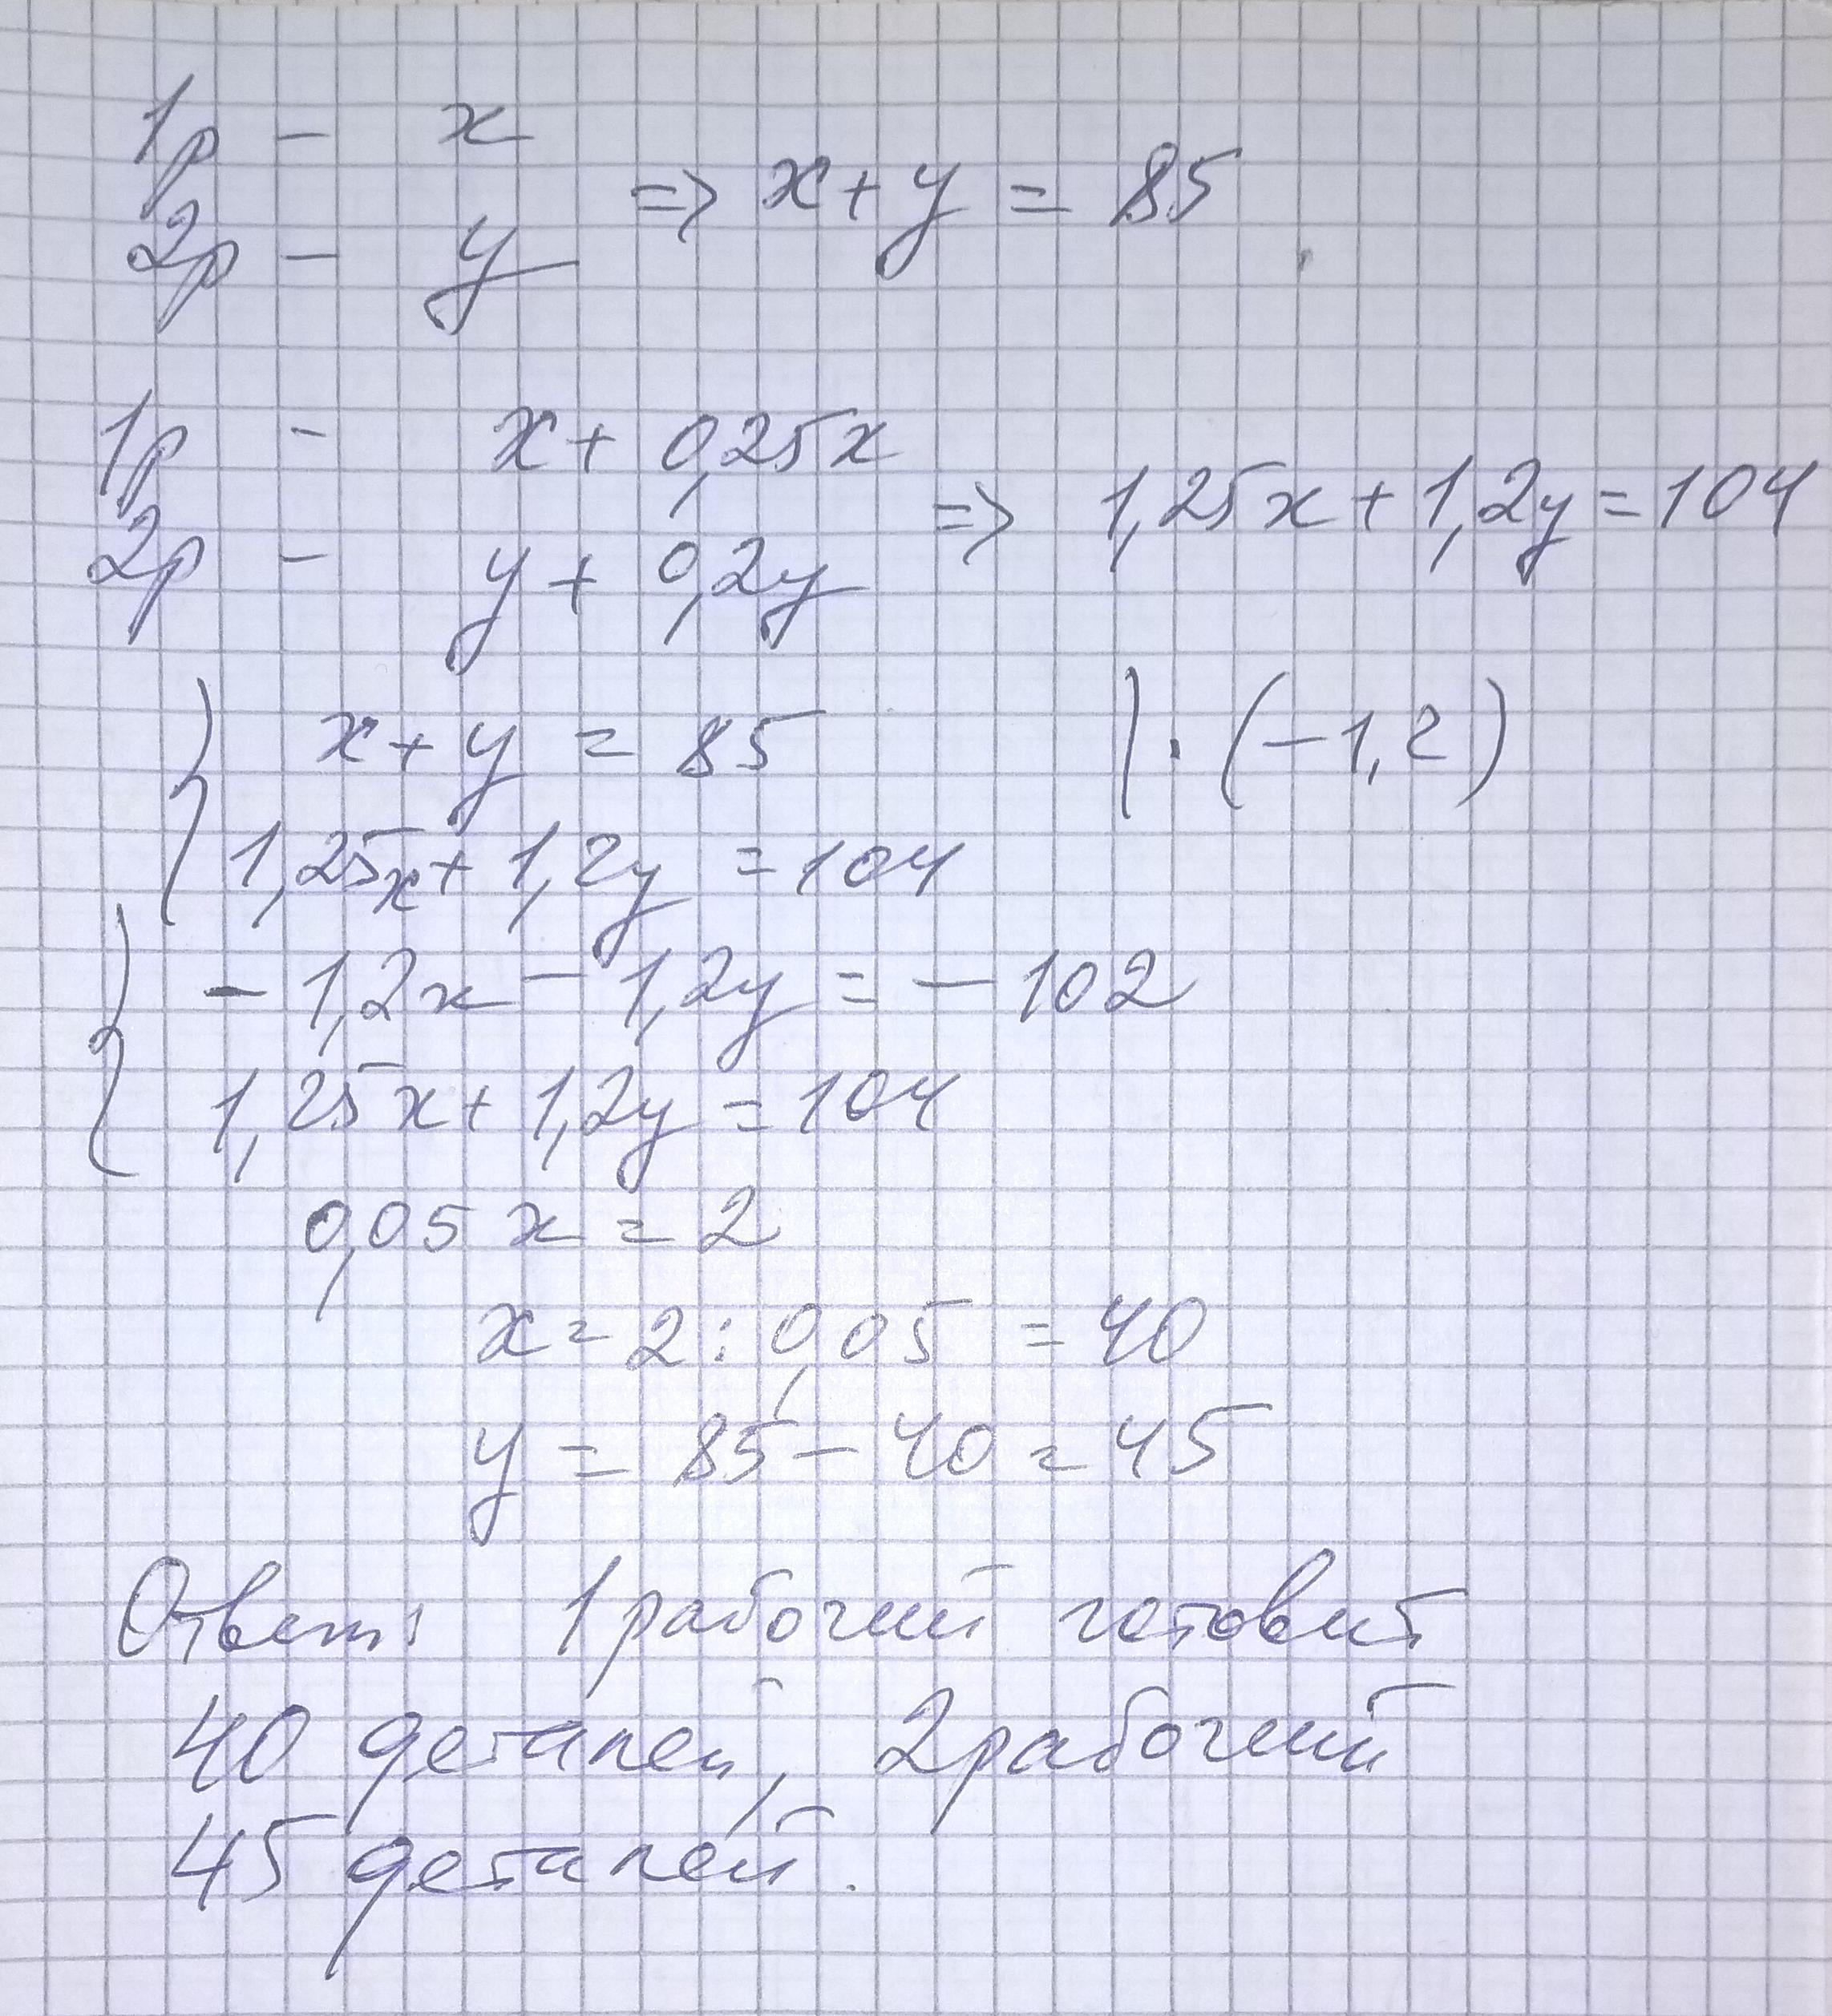 1р - x
2р - y => x + y = 85
1р - x + 0,25x
2р - y + 0,2y => 1,25x + 1,2y = 104
x + y = 85 | · (-1,2)
1,25x + 1,2y = 104
- 1,2x - 1,2y = - 102
1,25x + 1,2y = 104
0,05x = 2
x = 2 : 0,05 = 40
y = 85 - 40 = 45
Ответ: 1 рабочий готовит
40 деталей, 2 рабочий
45 деталей.